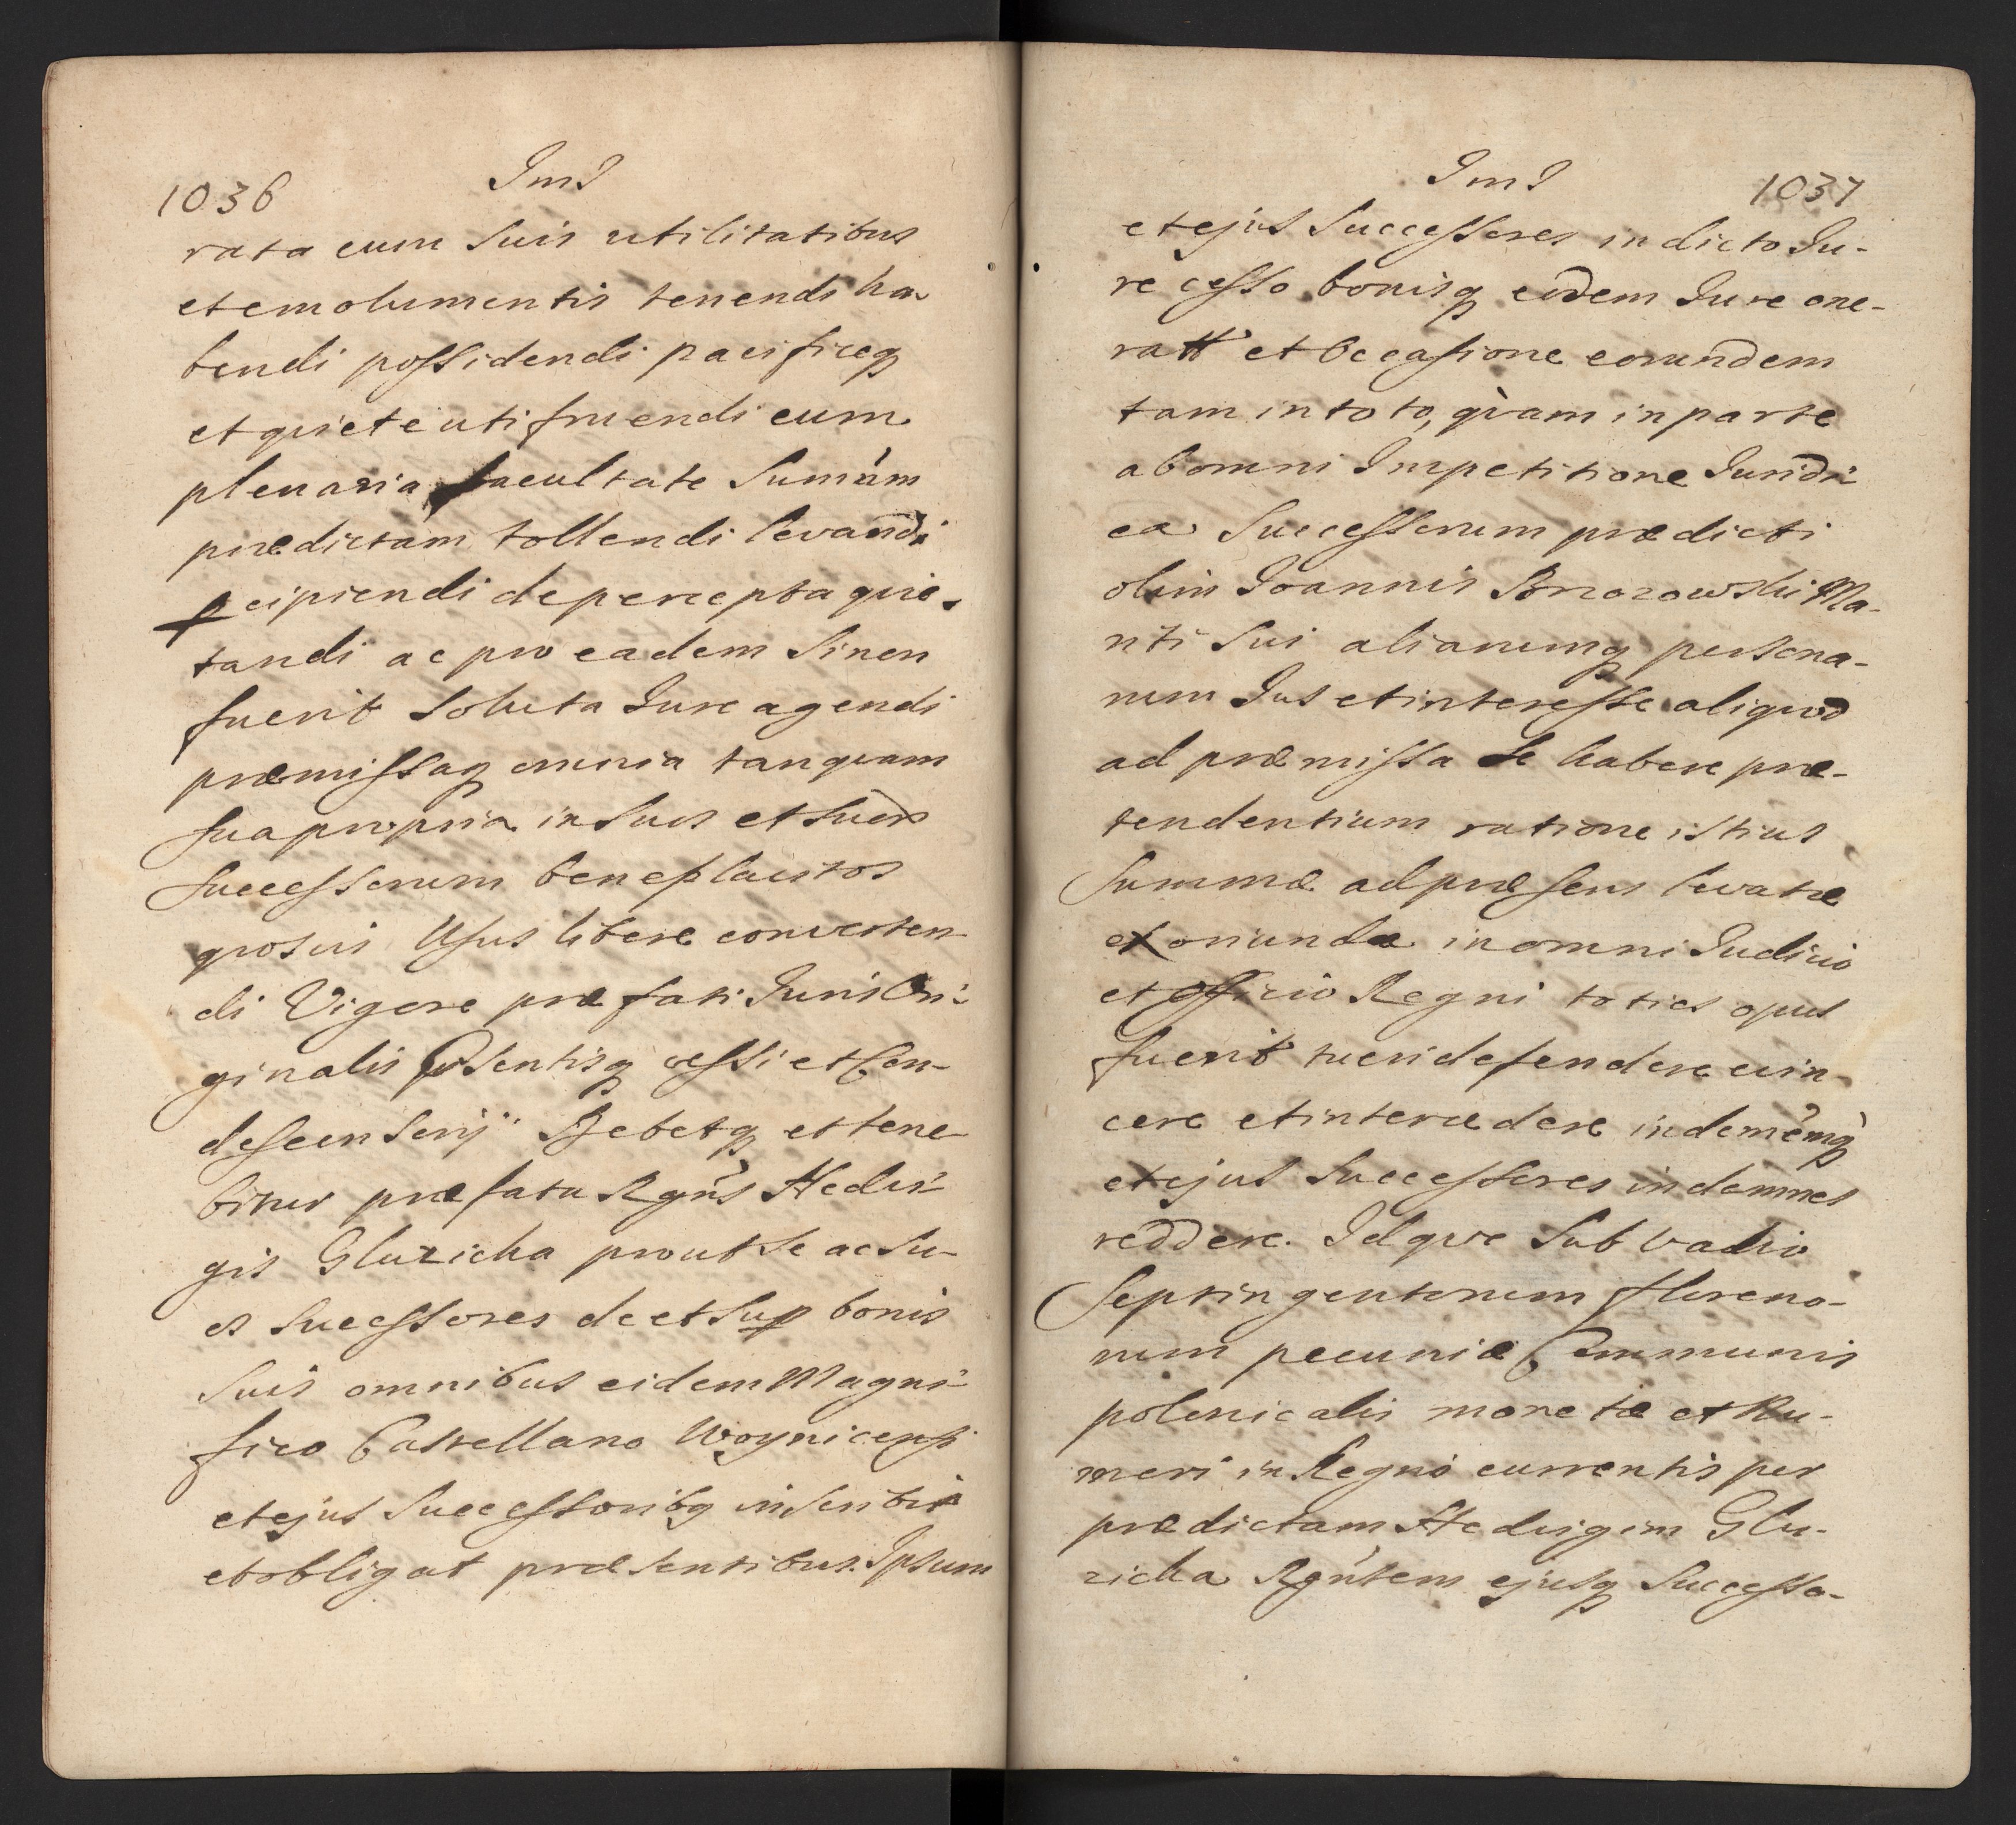 1036
JmJ
rata cum suis utilitatibus
et emolumentis tenendi ha-
bendi possidendi pacificeq
et quiete utifruendi cum
plenaria facultate Sumam
prædictam tollendi levandi
pcipiendi de percepta quie-
tandi ac pro eadem si non
fuerit soluta Jure agendi
præmissaq omnia tanquam
sua propria in suos et suor
successorum beneplacitos
quosvis Usus libere converten-
di Vigore præfati Juris Ori-
ginalis Psentisq cessi et Con-
descensorij Debetq et tene-
bitur præfata Rgns Hedvi-
gis Gluzicka prout se ac su-
os successores de et sup bonis
suis omnibus eidem Magni-
fico Castellano Woynicensi
et ejus Successoribq inscribit
et obligat præsentibus. Ipsum
JmJ
1037
et ejus Successores in dicto Ju-
re cesso bonisq eodem Jure one-
ratt et Occasione eorundem
tam in toto, quam in parte
ab omni Impetitione Juridi-
ca Successorum prædicti
olim Joannis Brzozowski Ma-
riti sui aliarumq persona-
rum Jus et interesse aliquod
ad præmissa se habere præ-
tendentium ratione istius
summæ ad præsens levatæ
et oriunda in omni Judicio
et Officio Regni toties opus
fuerit tueri defendere evin-
cere et intercedere indemēmq
et ejus Successores indemnes
reddere. Idque sub vadio
septingentorum floreno-
rum pecuniæ Communis
polonicalis monetæ et Nu-
meri in Regno currentis per
prædictam Hedvigem Glu-
zicka Rgntem ejusq Successo-